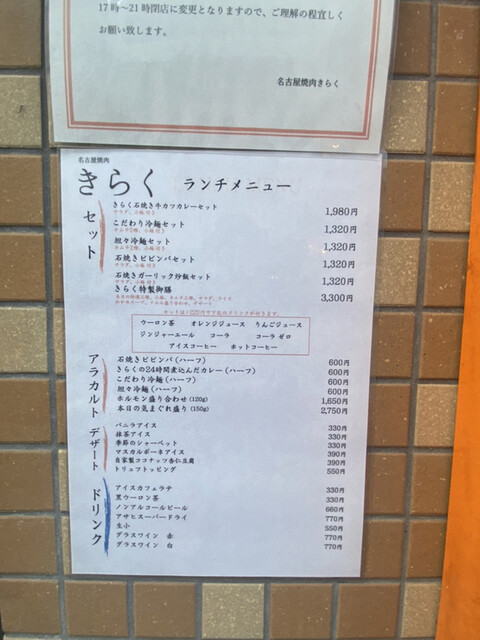 17時〜21時閉店に変更となりますので、ご理解の程宜しく
お願い致します。
名古屋焼肉きらく
名古屋焼肉
きらく ランチメニュー
セット
きらく石焼き牛カツカレーセット 1,980円
サラダ、小鉢 付き
こだわり冷麺セット 1,320円
キムチ2種、小鉢 付き
担々冷麺セット 1,320円
キムチ2種、小鉢 付き
石焼きビビンバセット 1,320円
サラダ、小鉢 付き
石焼きガーリック炒飯セット 1,320円
サラダ、小鉢 付き
きらく特製御膳 3,300円
セットは
円で下記のドリンクが付きます。
ウーロン茶 オレンジジュース りんごジュース
ジンジャーエール コーラ コーラ ゼロ
アイスコーヒー ホットコーヒー
アラカルト
石焼きビビンバ(ハーフ) 600円
きらくの24時間煮込んだカレー(ハーフ) 600円
こだわり冷麺(ハーフ) 600円
担々冷麺(ハーフ) 600円
ホルモン盛り合わせ(120g) 1,650円
本日の気まぐれ盛り(150g) 2,750円
デザート
バニラアイス 330円
抹茶アイス 330円
季節のシャーベット 330円
マスカルポーネアイス 390円
自家製ココナッツ杏仁豆腐 390円
トリュフトッピング 550円
ドリンク
アイスカフェラテ 330円
黒ウーロン茶 330円
ノンアルコールビール 660円
アサヒスーパードライ 770円
生小 550円
グラスワイン 赤 770円
グラスワイン 白 770円